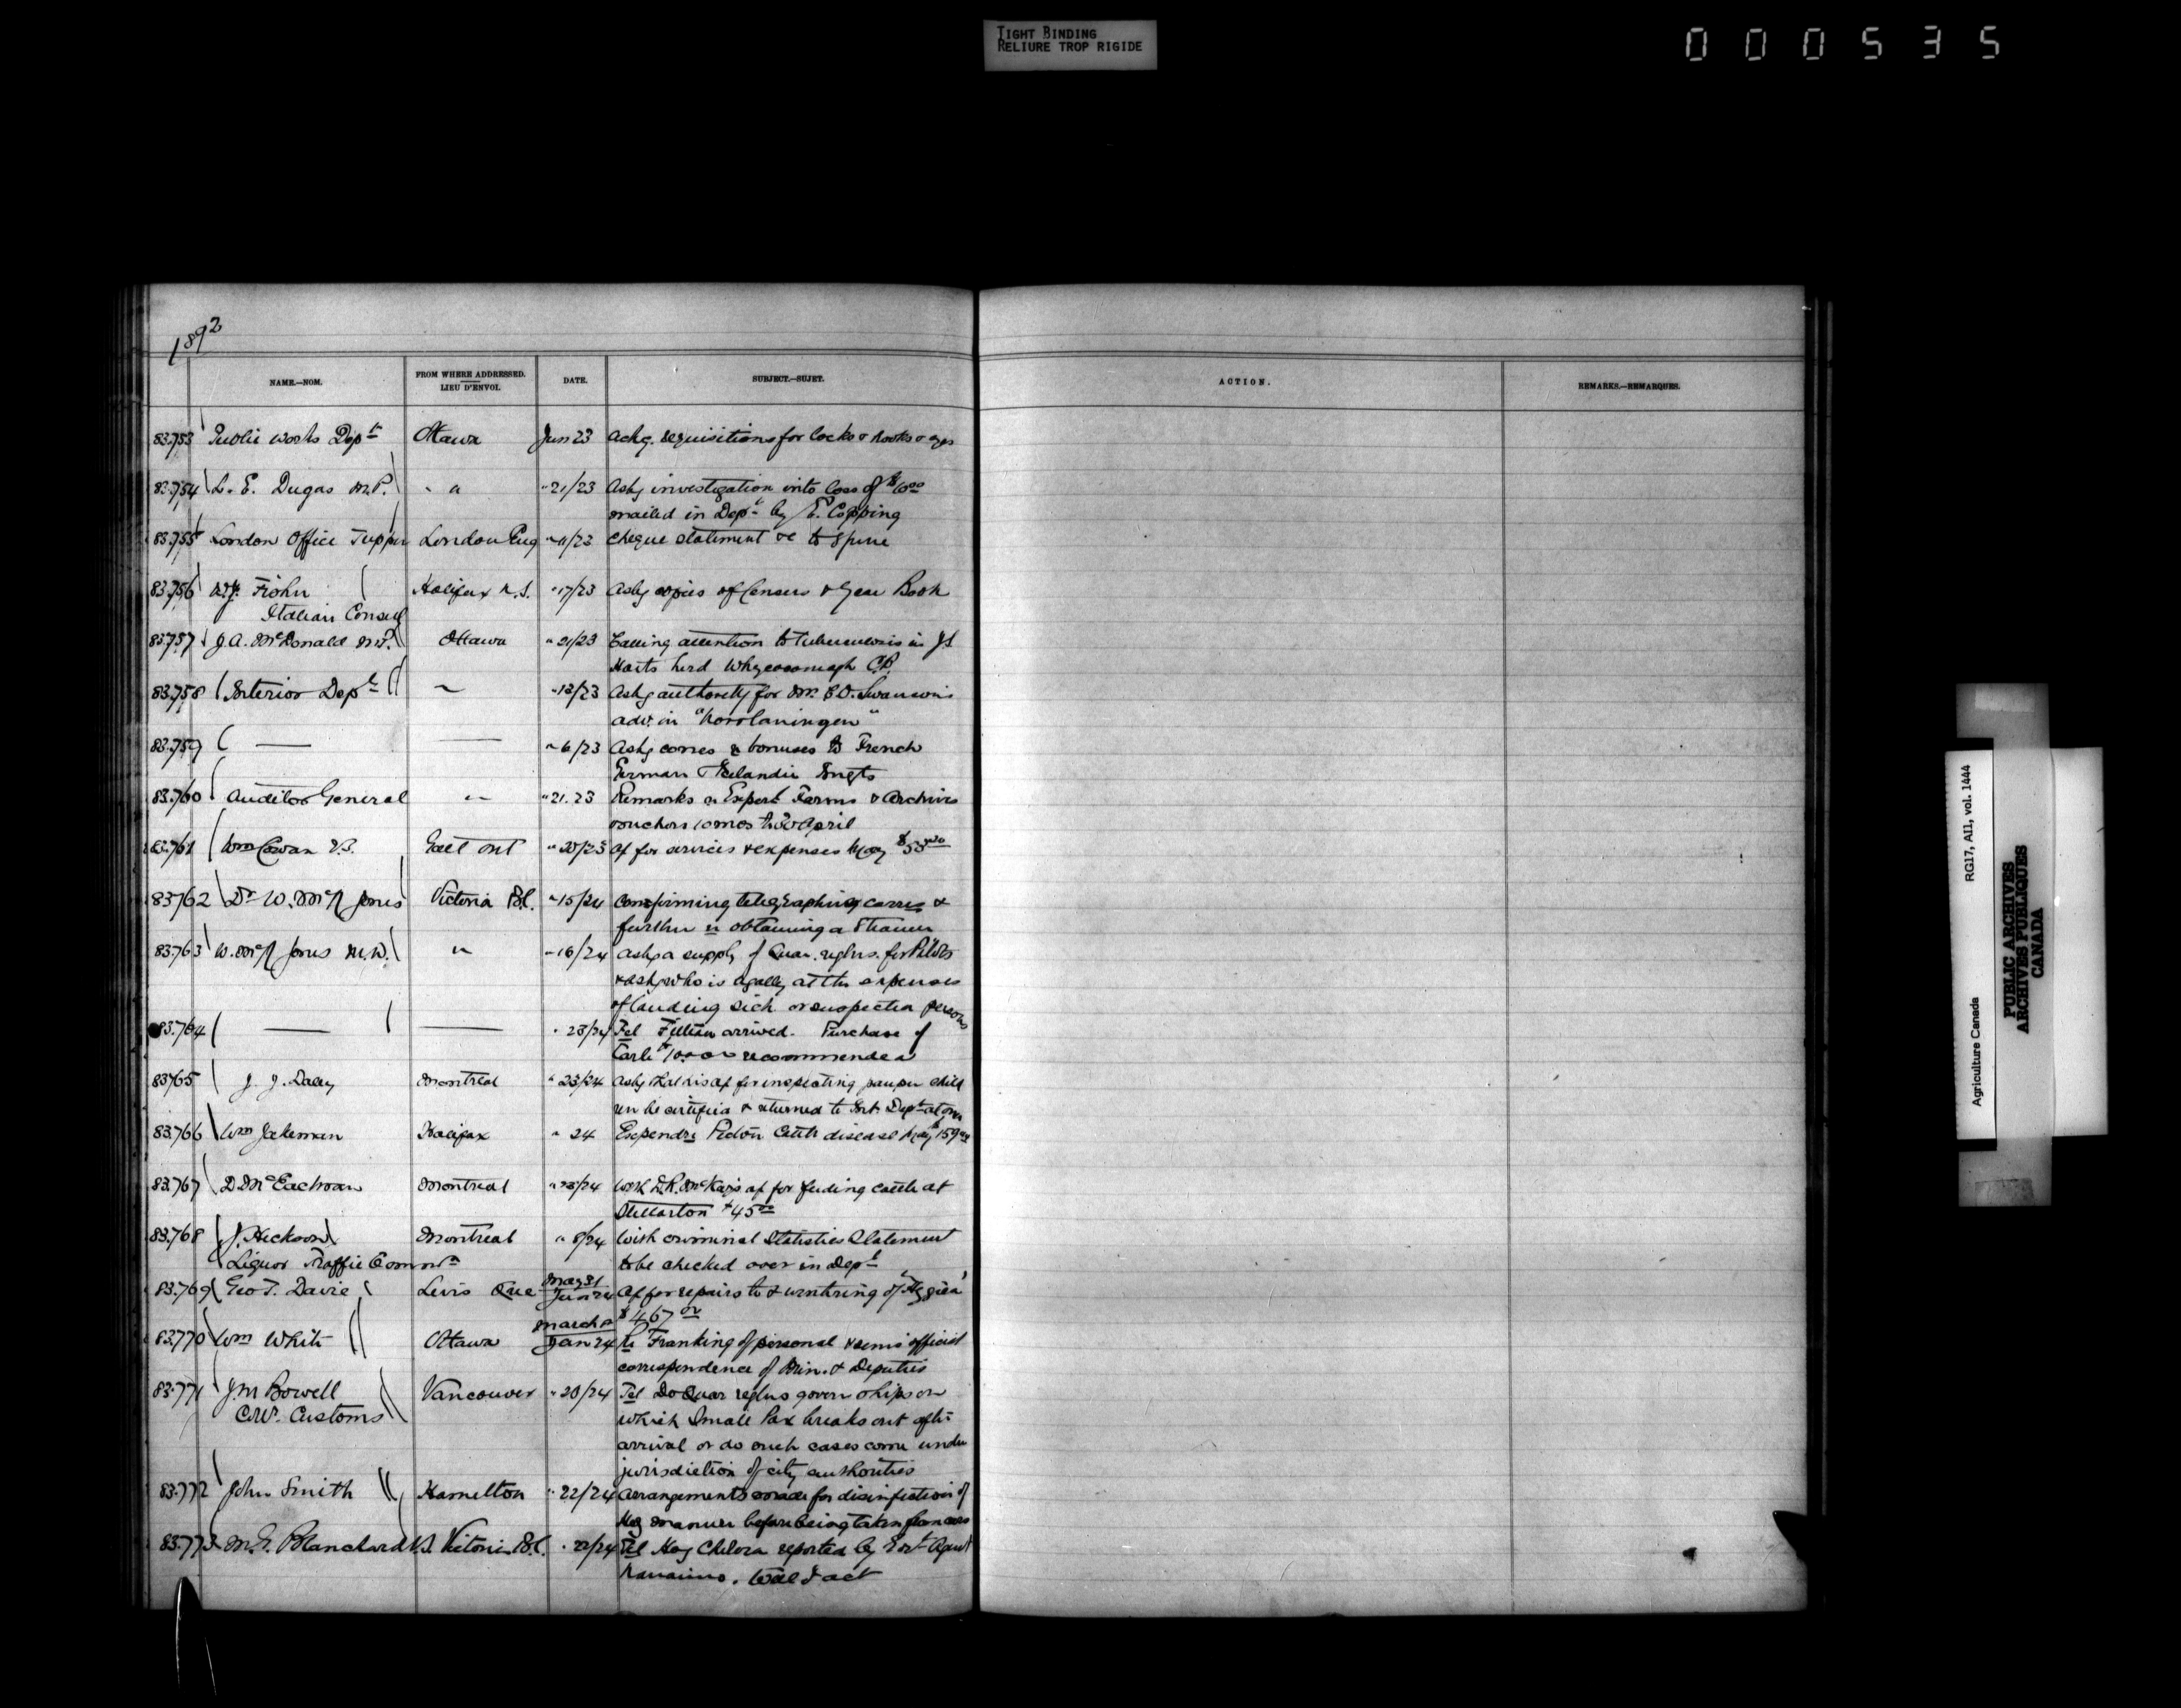 TIGHT BINDING
RELIURE TROP RIGIDE
000535
1892
NAME.—NOM.
FROM WHERE ADDRESSED.
LIEU D'ENVOI.
DATE.
SUBJECT.—SUJET.
ACTION.
REMARKS.—REMARQUES.
83.753 Public Works Dept Ottawa Jun 23 Ackg. requisitions for locks & hooks & eyes
83.754 L. E. Dugas M.P. " " " 21/23 Askg investigation into loss of $
mailed in Dept by E. Copping
83.755 London Office Tupper London Eng " 11/23 Cheque statement &c to June
83.756 Halifax N.S. " 17/23 Askg copies of Census & Year Book
Italian Consul
83.757 J. A. McDonald M.P. Ottawa " 21/23 Calling attention to Tuberculosis in
Harts herd Whycocomagh C.B.
83.758 Interior Dept " 13/23 Askg authority for Mr. Swanson's
advt. in
83.759 — — " 6/23 Askg bonuses to French
German & Icelandic
83.760 Auditor General " " 21.23 Remarks re Expert Farms & Archives
vouchers 10 mos to 30 April
83.761 Wm Cowan V.S. Galt Ont " 20/23 a/c for services & expenses May
83762 Dr W. McN Jones Victoria B.C. " 15/24 Confirming telegraphing corres &
further re obtaining a Steamer
83.763 W. McN Jones M.D. " " 16/24 Askg a supply of Quar. reglns. for Pilots
& askg who is legally at the expenses
of landing sick or suspected persons
83.764 — — " 23/24 Tel arrived. Purchase of
recommended
83765 J. J. Daley Montreal " 23/24 Askg that his a/c for inspecting pauper child
ren be certified & returned to Dept at once
83.766 Wm Jakeman Halifax " 24 Expendre Pictou Cattle disease May
83.767 D McEachran Montreal " 23/24 D. R. McKay's a/c for feeding cattle at
Stellarton $45
83.768 J. Hickson Montreal " 8/24 Wish criminal Statistics Statement
Liquor Traffic Commn to be checked over in Dept
83.769 Geo T. Davie Levis Que May 31
Jun 24 a/c for repairs to & wintering of "Hygeia"
$467
83.770 Wm White Ottawa March
Jan 24 re Franking of personal & semi official
correspondence of Min. & Deputies
83.771 J M Bowell Vancouver " 20/24 Tel Do Quar reglns govern ships on
Customs which Small Pox breaks out after
arrival or do such cases come under
jurisdiction of city authorities
83.772 John Smith Hamilton " 22/24 Arrangements made for disinfection of
Hog manure before being taken from cars
83.773 Blanchard V.S. Victoria B.C. " 22/24 Tel Hog Cholera reported by Agent
Nanaimo. Will I act
Agriculture Canada RG17, AII, vol. 1444
PUBLIC ARCHIVES
ARCHIVES PUBLIQUES
CANADA